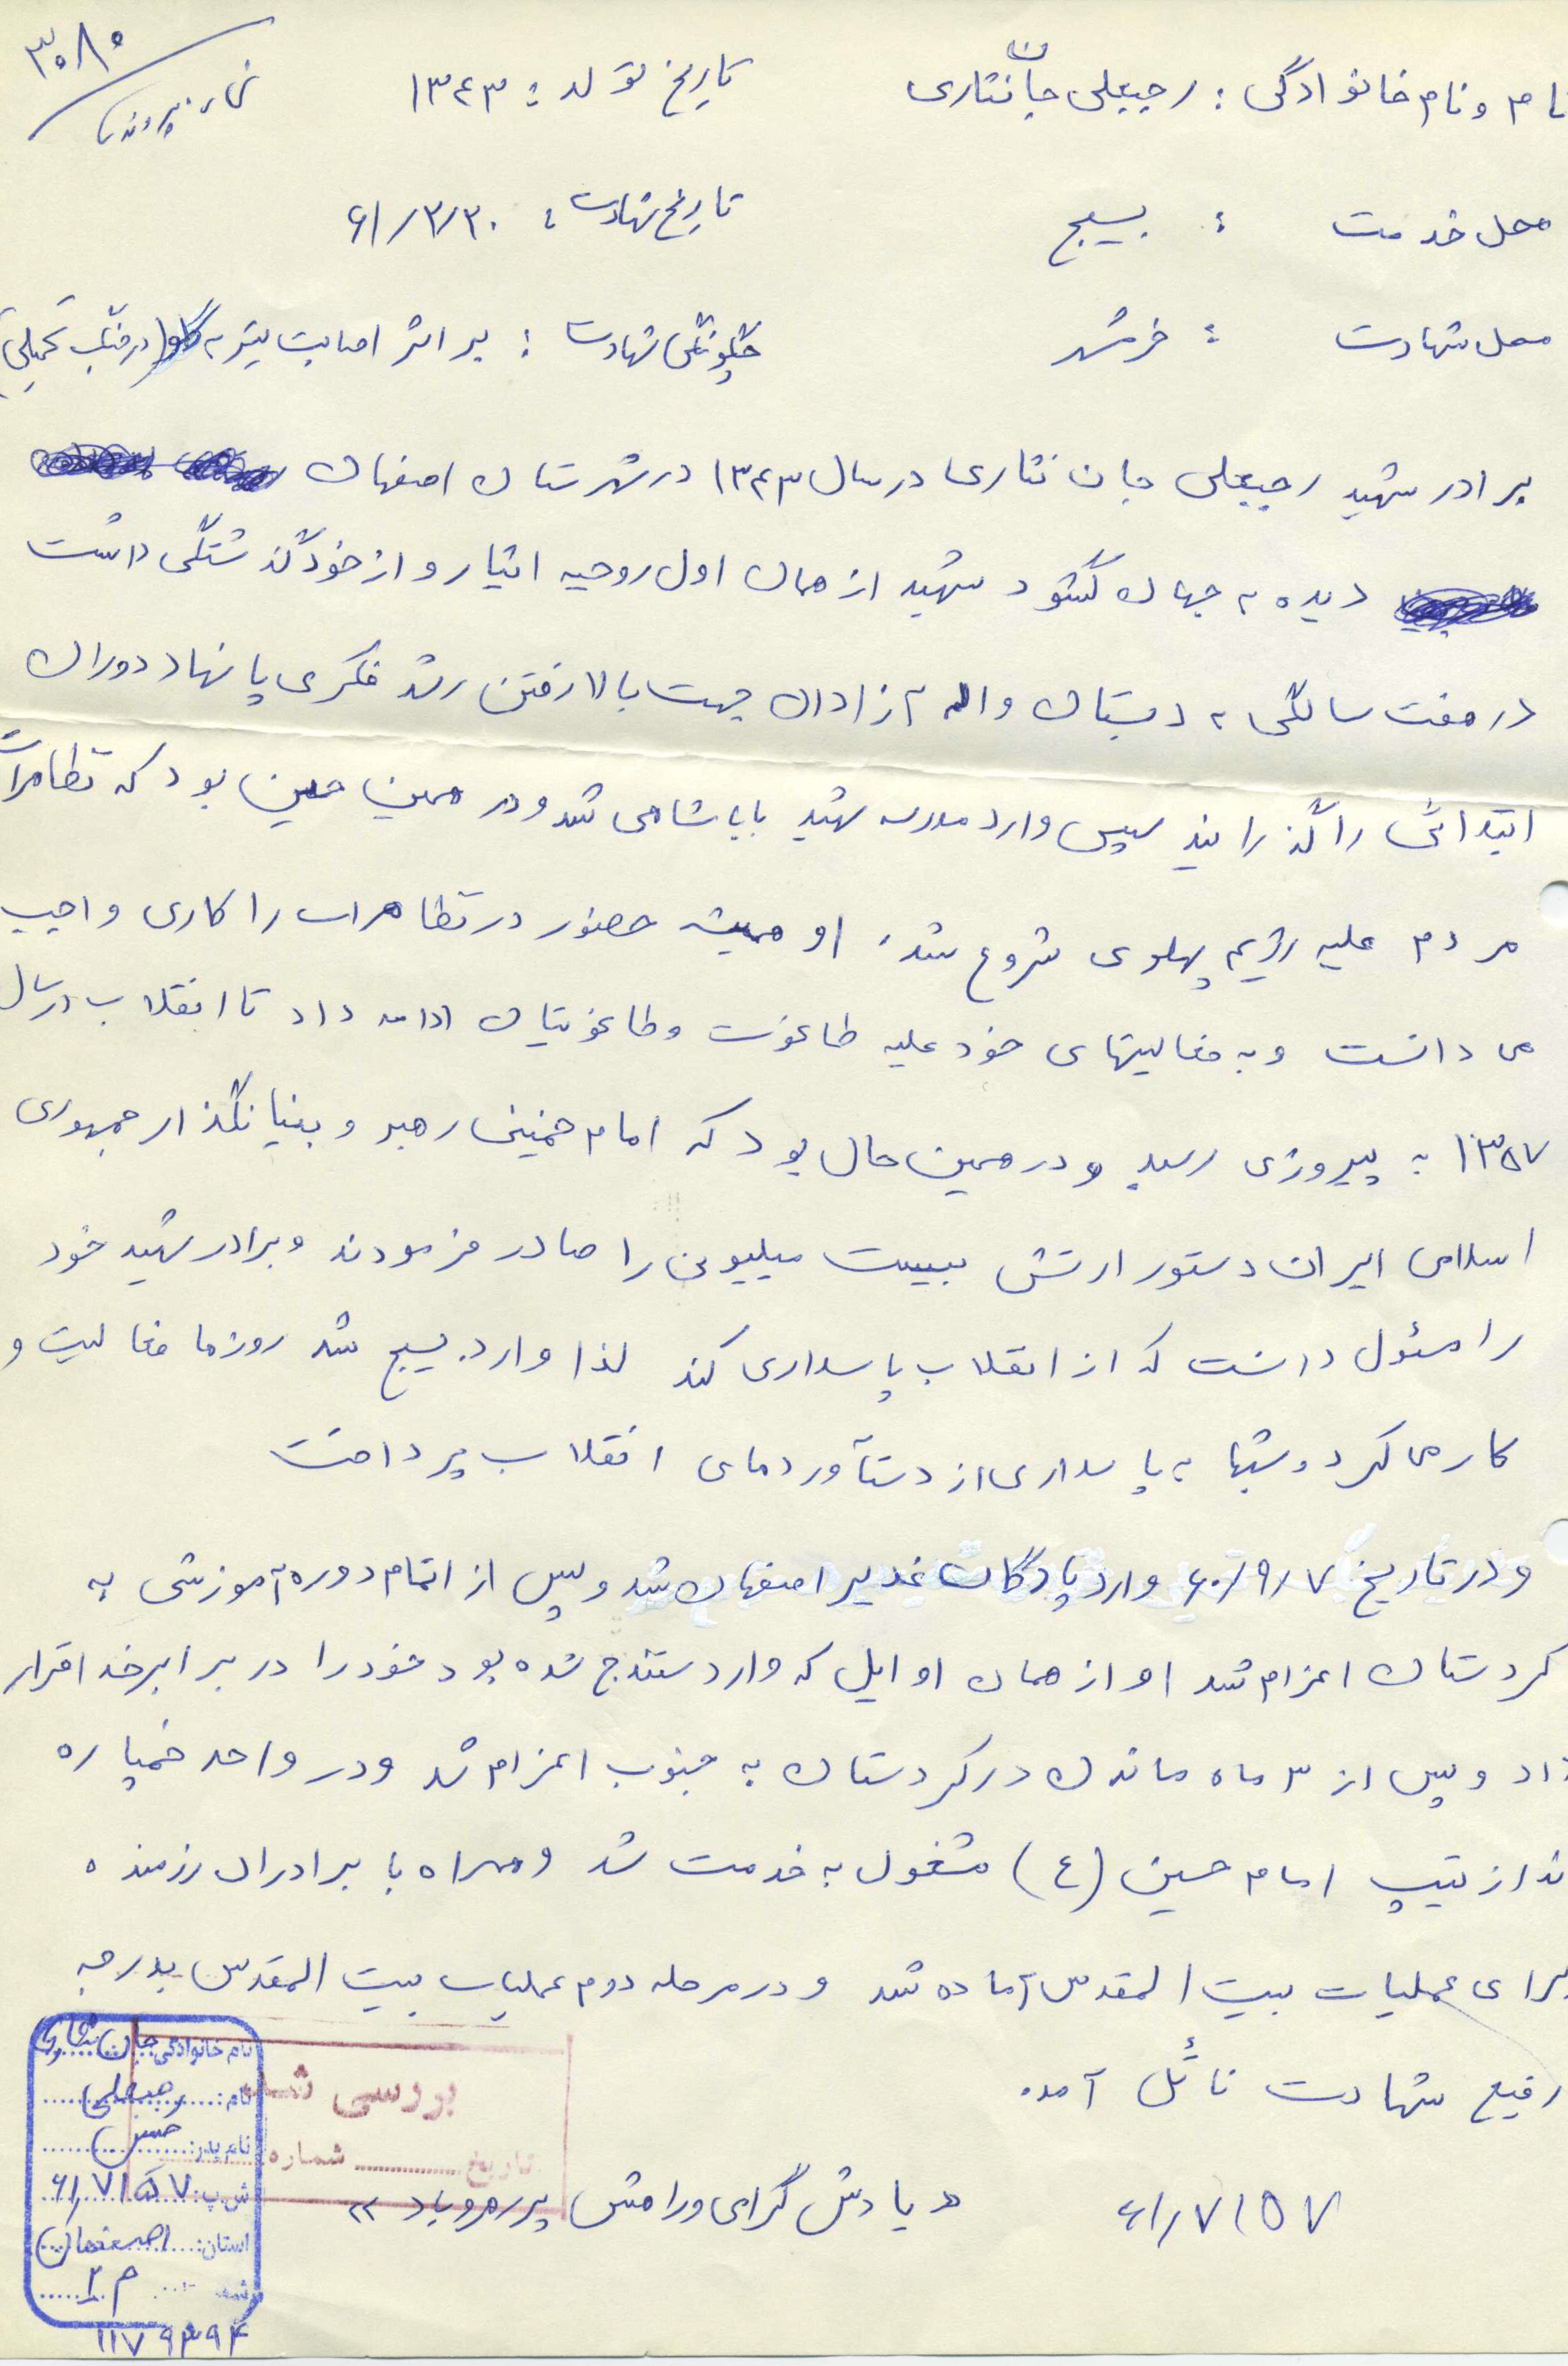 ۳۰۸۰
شماره پرونده
نام و نام خانوادگی : رجبعلی جان نثاری
تاریخ تولد : ۱۳۴۳
محل خدمت : بسیج
تاریخ شهادت : ۶۱/۲/۲۰
محل شهادت : خرمشهر
چگونگی شهادت : بر اثر اصابت تیر به گلو (در جنگ تحمیلی)
برادر شهید رجبعلی جان نثاری در سال ۱۳۴۳ در شهرستان اصفهان
دیده به جهان گشود شهید از همان اول روحیه ایثار و از خودگذشتگی داشت
در هفت سالگی به دبستان واله آزادان جهت بالا رفتن رشد فکری پا نهاد دوران
ابتدائی را گذرانید سپس وارد مدرسه شهید باباشاهی شد و در همین حین بود که تظاهرات
مردم علیه رژیم پهلوی شروع شد، او همیشه حضور در تظاهرات را کاری واجب
می دانست و به فعالیتهای خود علیه طاغوت و طاغوتیان ادامه داد تا انقلاب در سال
۱۳۵۷ به پیروزی رسید و در همین حال بود که امام خمینی رهبر و بنیانگذار جمهوری
اسلامی ایران دستور ارتش بیست میلیونی را صادر فرمودند و برادر شهید خود
را مسئول دانست که از انقلاب پاسداری کند لذا وارد بسیج شد روزها فعالیت و
کار می کرد و شبها به پاسداری از دستآوردهای انقلاب پرداخت
و در تاریخ ۶۰/۹/۷ وارد پادگان غدیر اصفهان شد و پس از اتمام دوره آموزشی به
کردستان اعزام شد او از همان اوایل که وارد سنندج شده بود خود را در برابر خدا قرار
داد و پس از ۳ ماه ماندن در کردستان به جنوب اعزام شد و در واحد خمپاره
انداز تیپ امام حسین (ع) مشغول به خدمت شد و همراه با برادران رزمنده
برای عملیات بیت المقدس آماده شد و در مرحله دوم عملیات بیت المقدس بدرجه
رفیع شهادت نائل آمد.
« یادش گرامی و راهش پر رهرو باد »
۶۱/۷۱۵۷
بررسی شد
تاریخ ............ شماره
نام خانوادگی: جان نثاری
نام: رجبعلی
نام پدر: حسن
ش پ: ۶۱/۷۱۵۷
استان: اصفهان
۱۱۷۹۳۹۴